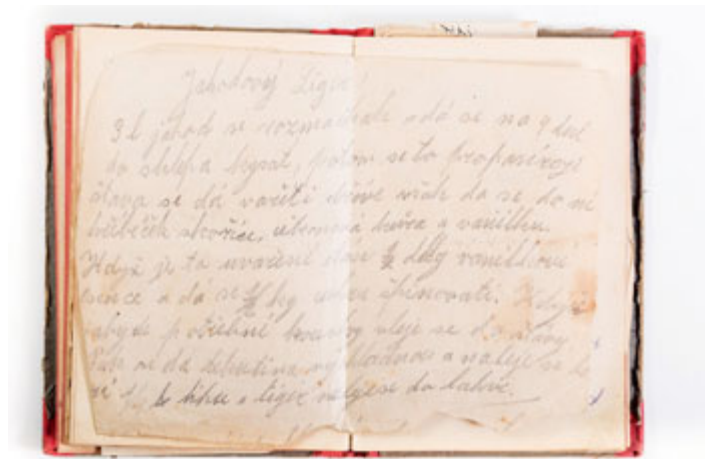 Jahodový ligér
3 l jahod se rozmačkale a dá se na 9 dnů
do sklepa kysat, potom se to propasíruje
šťava se dá vařiti dříve však da se do ní
hřebíček skořice, citronová kůra a vanilku.
Když je to uvařené dáse vanilkové
esence a dá se kg cukru špinovati. Když
potřebné kvasky vleje se do šťávy
Pak se dá tekutina vychladnou a naleje se do
ní lihu a ligér naleje se do lahve.